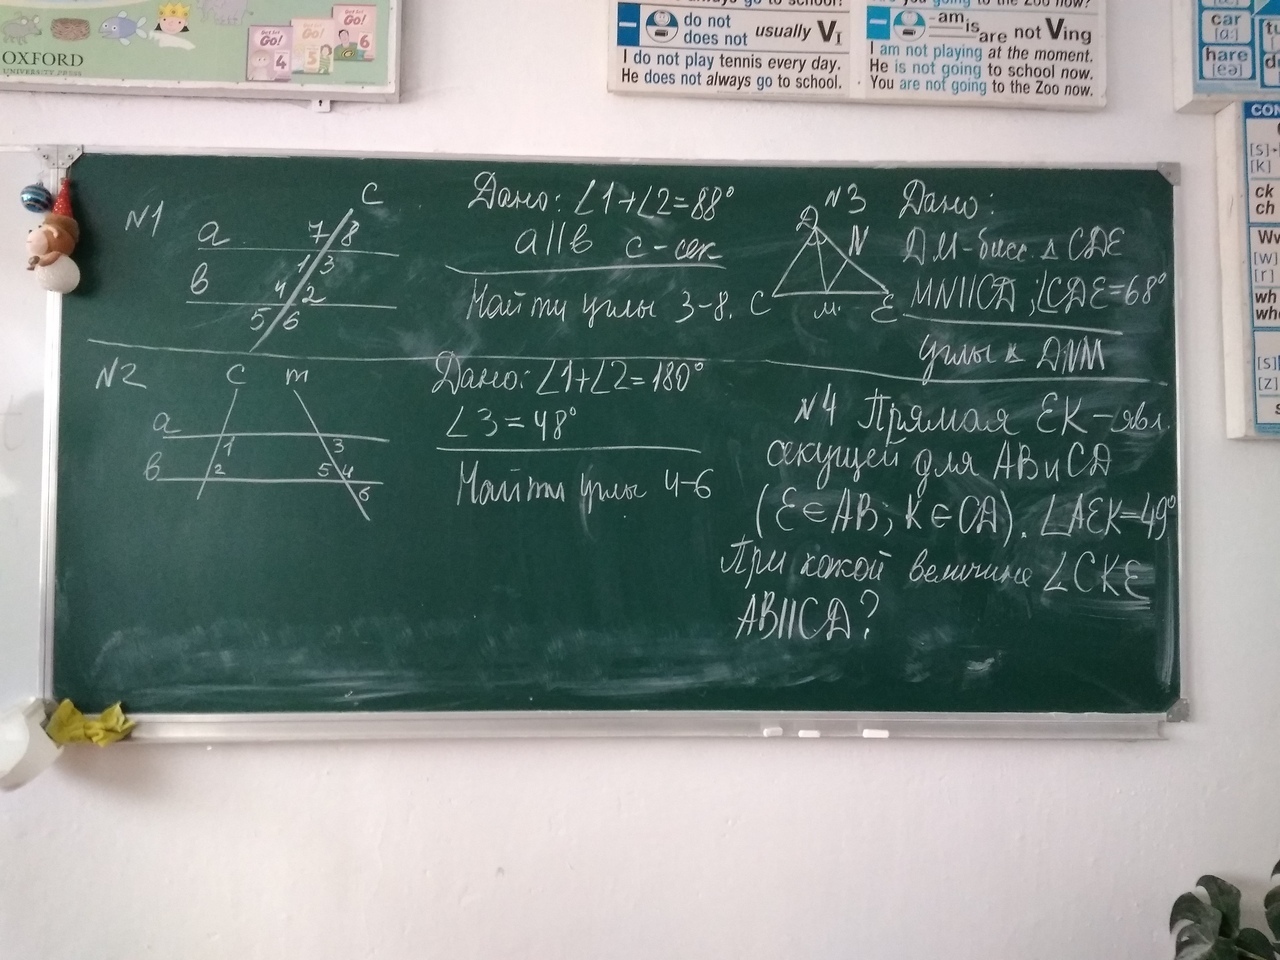 OXFORD
UNIVERSITY PRESS
Go!
4
Go!
5
Go!
6
do not
does not
usually VI
I do not play tennis every day.
He does not always go to school.
am
is
are
not Ving
I am not playing at the moment.
He is not going to school now.
You are not going to the Zoo now.
car
[ɑ:]
hare
[eə]
CON
[S]
[K]
ck
ch
W
[w]
[r]
wh
wh
[S]
[Z]
№1
a
в
c
7 8
1 3
4 2
5 6
Дано: ∠1+∠2=88°
a||в c-сек
Найти углы 3-8.
№2
c m
a
в
1
2
3
5 4
6
Дано: ∠1+∠2=180°
∠3=48°
Найти углы 4-6
№3
D
N
C
M
E
Дано:
DM-бисс. Δ CDE
MN||CD; ∠CDE=68°
углы Δ DNM
№4 Прямая EK-явл.
секущей для AB и CD
(E∈AB; K∈CD). ∠AEK=49°
При какой величине ∠CKE
AB||CD?